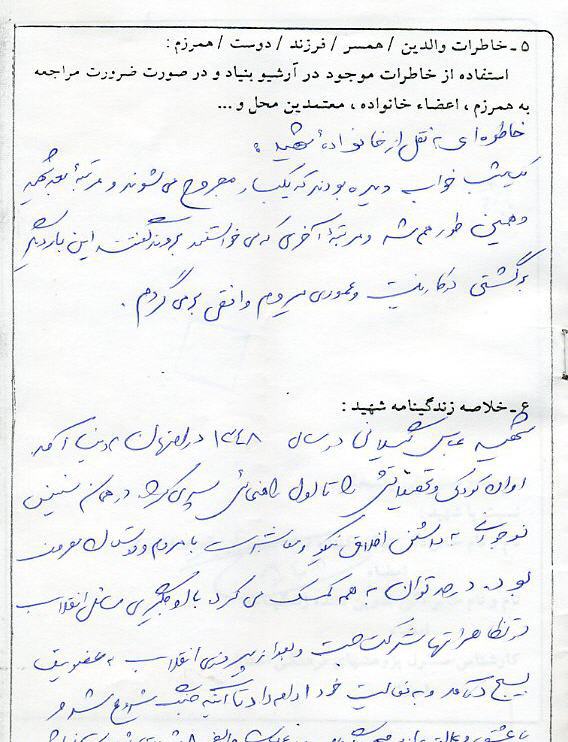 ۵ ـ خاطرات والدین / همسر / فرزند / دوست / همرزم :
استفاده از خاطرات موجود در آرشیو بنیاد و در صورت ضرورت مراجعه
به همرزم ، اعضاء خانواده ، معتمدین محل و ...
خاطره‌ای به نقل از خانواده شهید :
یکشب خواب دیده بودند که یکبار مجروح می شوند و مرتبه بعد شهید
و همین طور هم شد و مرتبه آخری که می خواستند بروند گفتند این بار دیگر
برگشتی در کار نیست و عمودی میروم و افقی برمی گردم .
۶ ـ خلاصه زندگینامه شهید :
شهید عباس در سال ۱۳۴۸ در اصفهان بدنیا آمد.
اوان کودکی و تحصیلاتش را تا اول راهنمائی سپری کرد. در همان سنین
نوجوانی به داشتن اخلاق نیکو و معاشرت با مردم و دوستان معروف
بود. در حد توان به همه کمک می کرد. با اوجگیری مسائل انقلاب
در تظاهراتها شرکت جست و بعد از پیروزی انقلاب به عضویت
بسیج درآمد و به فعالیت خود ادامه داد تا آنکه جنگ شروع شد و